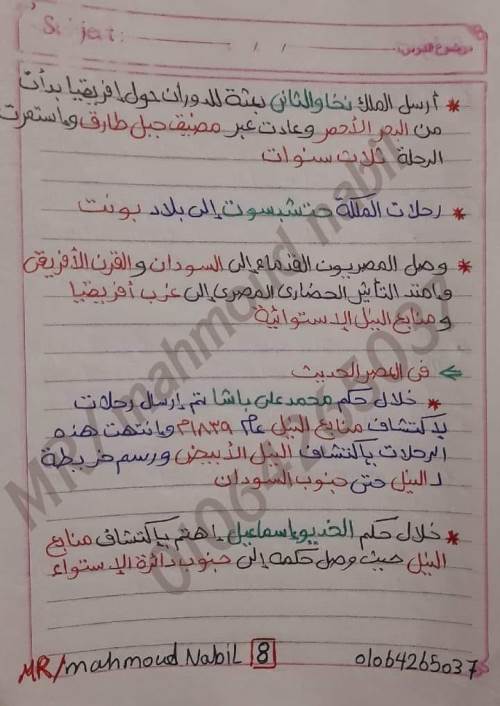 Subject:
موضوع الدرس:
* أرسل الملك نخاو الثانى بعثة للدوران حول إفريقيا بدأت
من البحر الأحمر وعادت عبر مضيق جبل طارق واستمرت
الرحلة ثلاث سنوات
* رحلات الملكة حتشبسوت إلى بلاد بونت
* وصل المصريون القدماء إلى السودان والقرن الأفريقى
وامتد التأثير الحضارى المصرى إلى غرب أفريقيا
ومنابع النيل الإستوائية
← فى العصر الحديث
* خلال حكم محمد على باشا تم إرسال رحلات
لإكتشاف منابع النيل عام ١٨٣٩م وانتهت هذه
الرحلات بإكتشاف النيل الأبيض ورسم خريطة
لـ النيل حتى جنوب السودان
* خلال حكم الخديو إسماعيل إهتم بإكتشاف منابع
النيل حيث وصل حكمه إلى جنوب دائرة الإستواء
MR/mahmoud Nabil 8 01064265037
MR/mahmoud nabil
01064265037